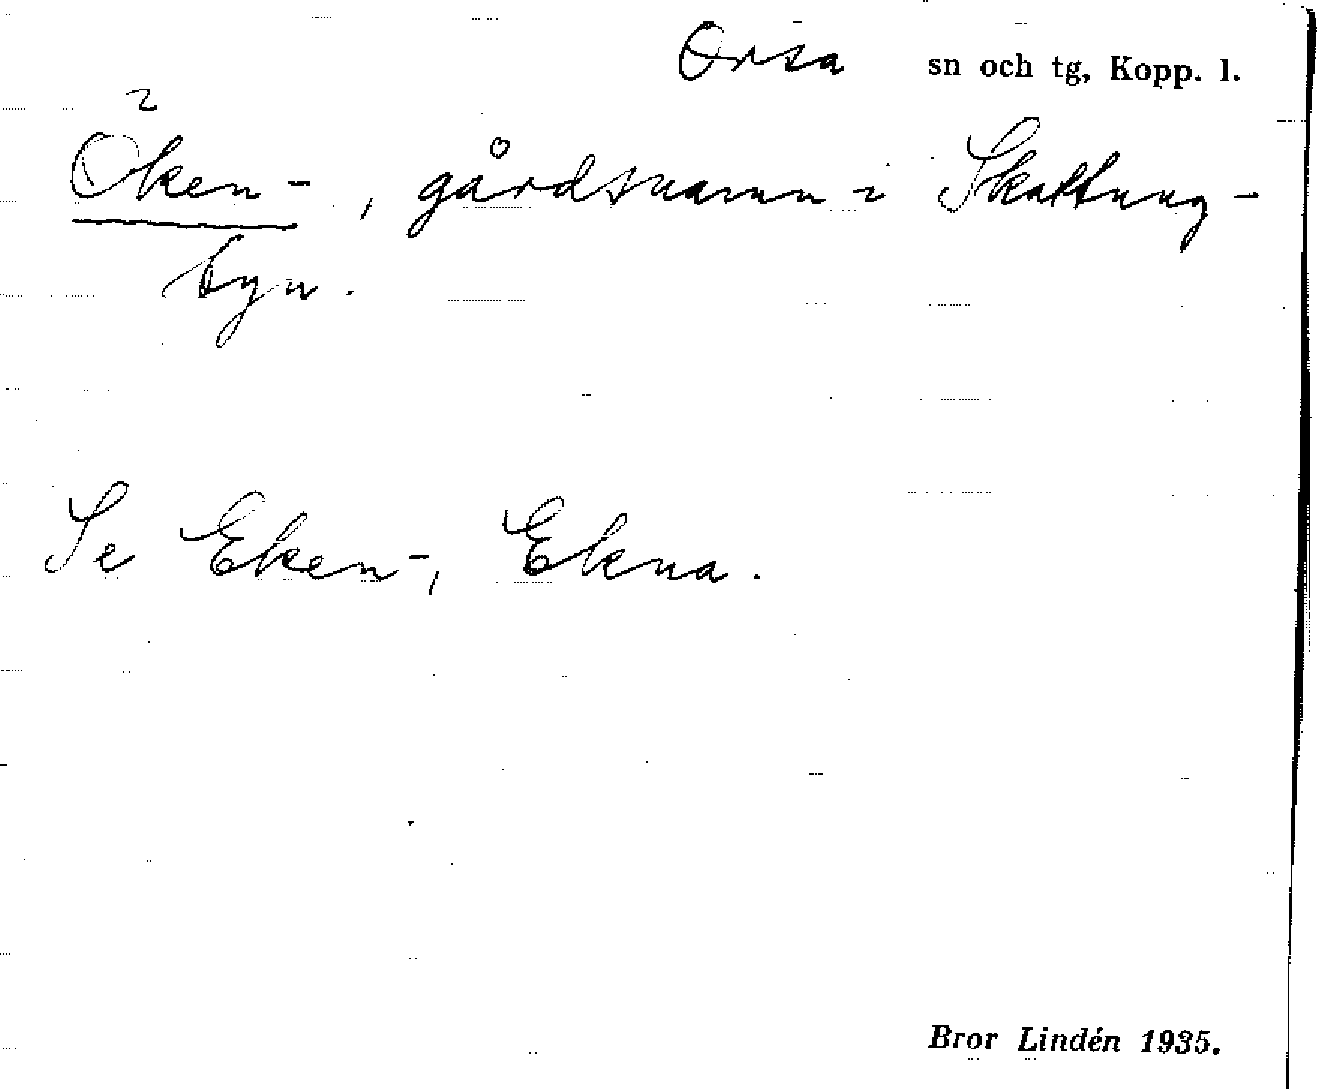 Orsa sn och tg, Kopp. l.
Öken-, gårdsnamn i Skattung-
byn.
Se Eken-, Ekna.
Bror Lindén 1935.